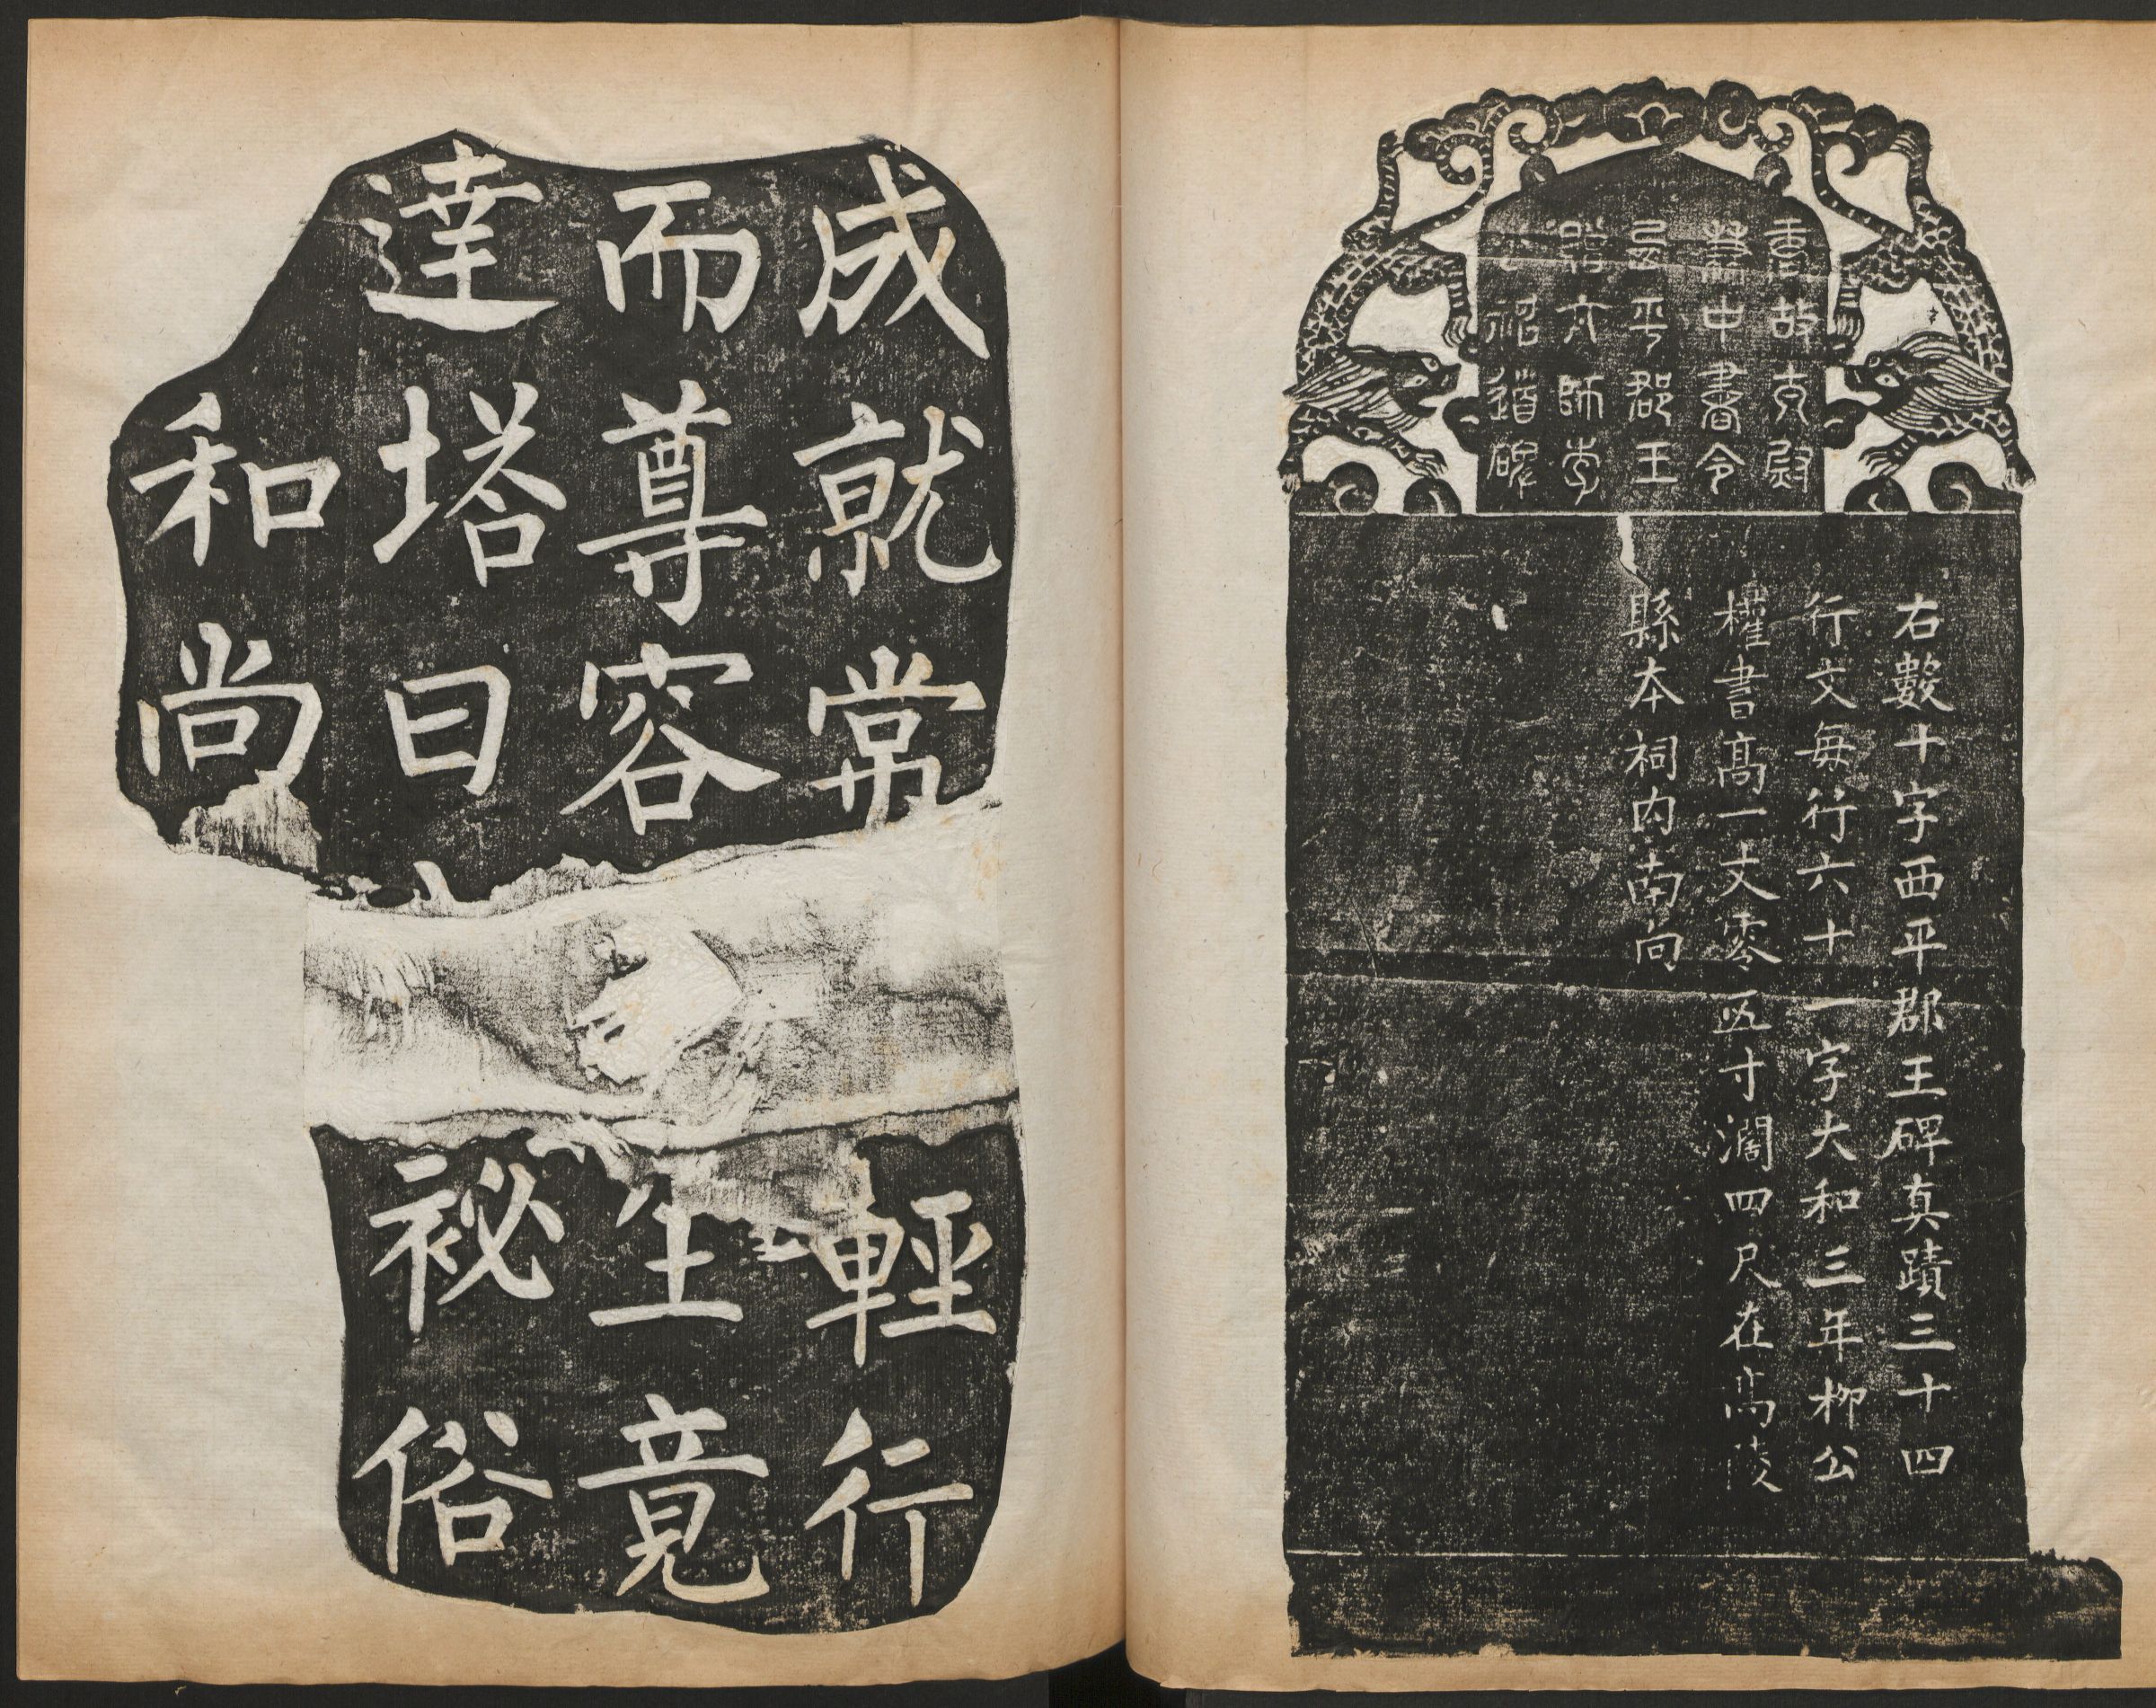 唐故太尉
兼中書令
西平郡王
贈太師李
公神道碑
右數十字西平郡王碑真蹟三十四
行文每行六十一字大和三年柳公
權書髙一丈零五寸濶四尺在髙陵
縣本祠内南向
成就常輕行
而尊容生竟
達塔曰祕俗
和尚